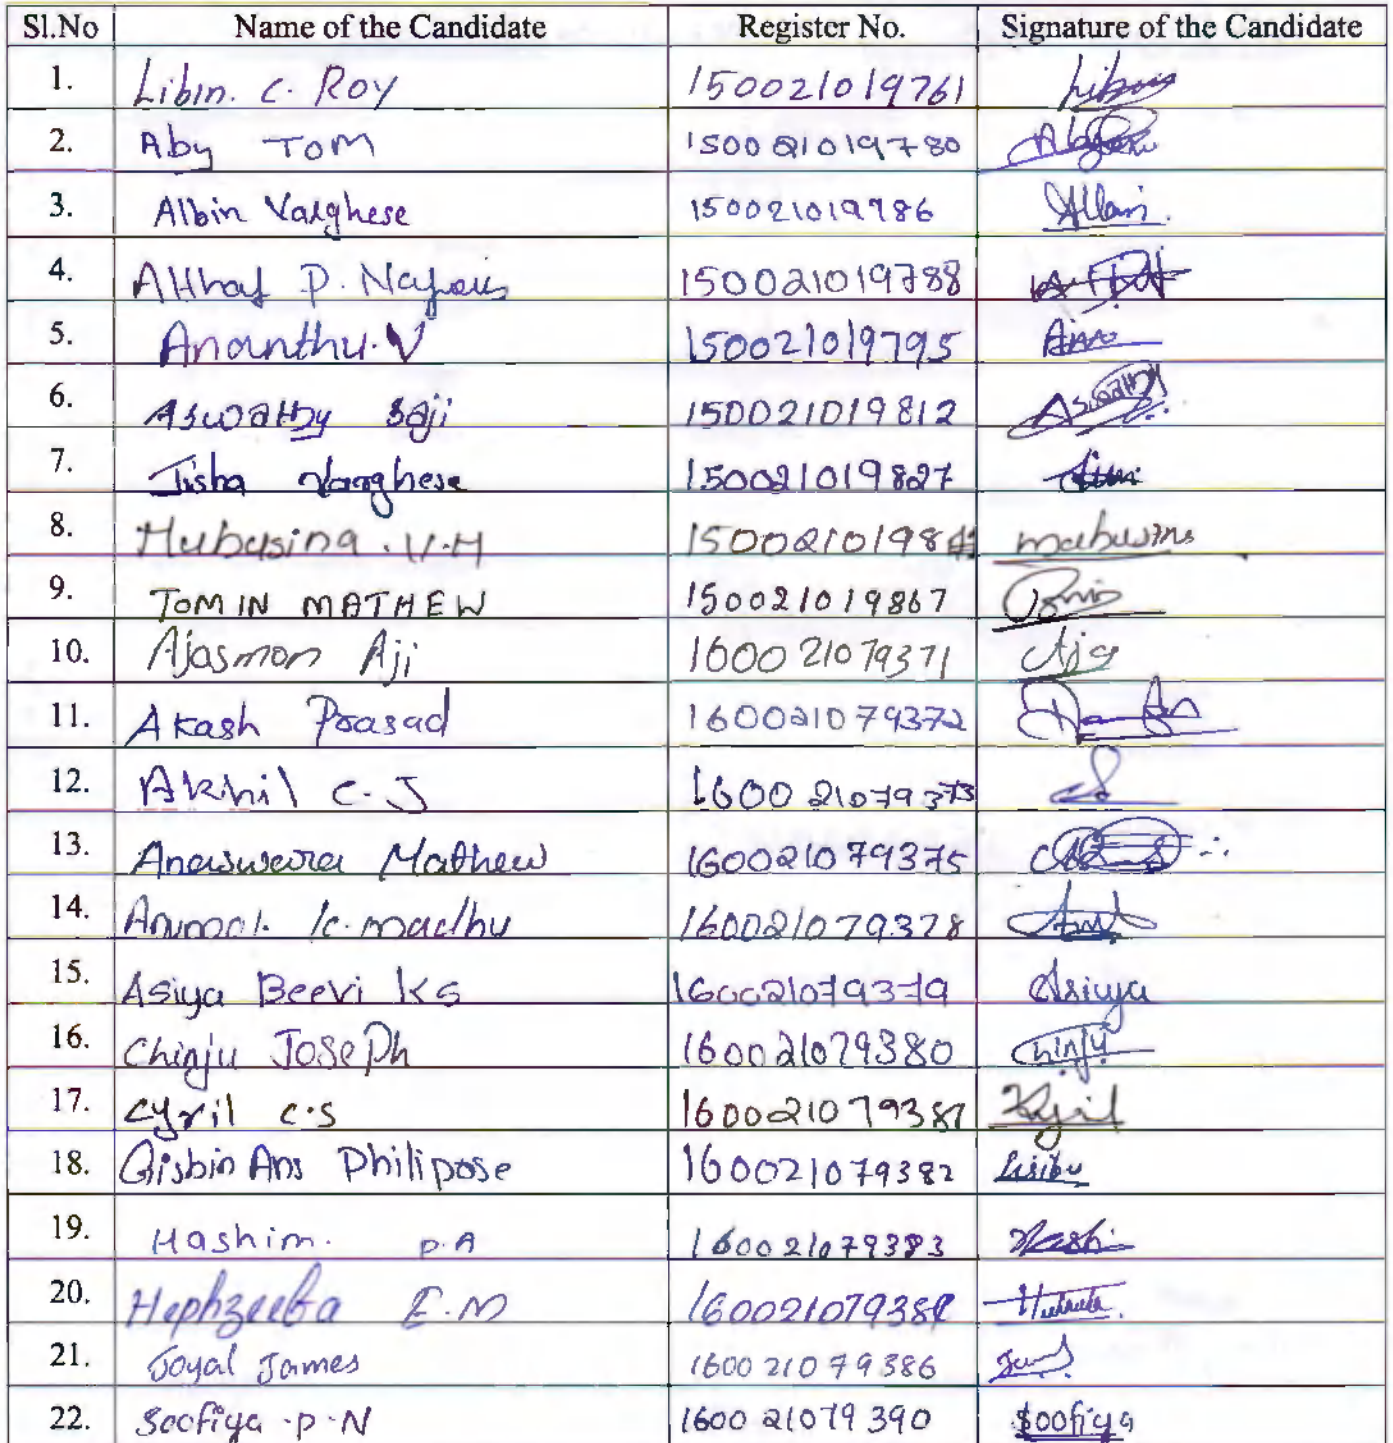 Sl.No Name of the Candidate Register No. Signature of the Candidate
1. Libin. C. Roy 150021019761 Libin
2. Aby TOM 150021019780
3. Albin Varghese 150021019786
4. Althaf P. Nafais 150021019788
5. Ananthu.V 150021019795
6. Aswathy Saji 150021019812 Aswathy
7. Jisha Varghese 150021019827
8. Mubasina.V.H 15002101984
9. TOMIN MATHEW 150021019867
10. Ajasmon Aji 160021079371
11. Akash Prasad 160021079372
12. Akhil C.J 160021079373
13. Anaswara Mathew 160021079375
14. Anumol. K. madhu 160021079378
15. Asiya Beevi K S 160021079379 Asiya
16. Chinju JOSEPh 160021079380 Chinju
17. Cyril C.S 160021079381 Cyril
18. Gisbin Ans Philipose 160021079382
19. Hashim. P.A 160021079383 Hashi
20. Hephzeeba E.M 16002107938
21. Joyal James 160021079386
22. Soofiya .P.N 160021079390 Soofiya